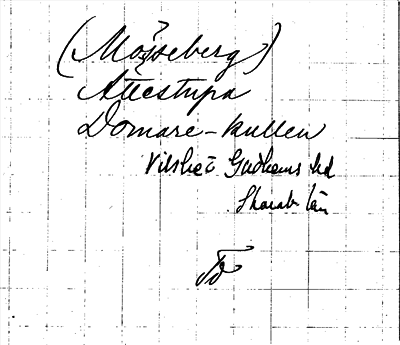 (Mösseberg)
Ättestupa
Domare-kullen
Vilske Gudhems hd
Skarab. län